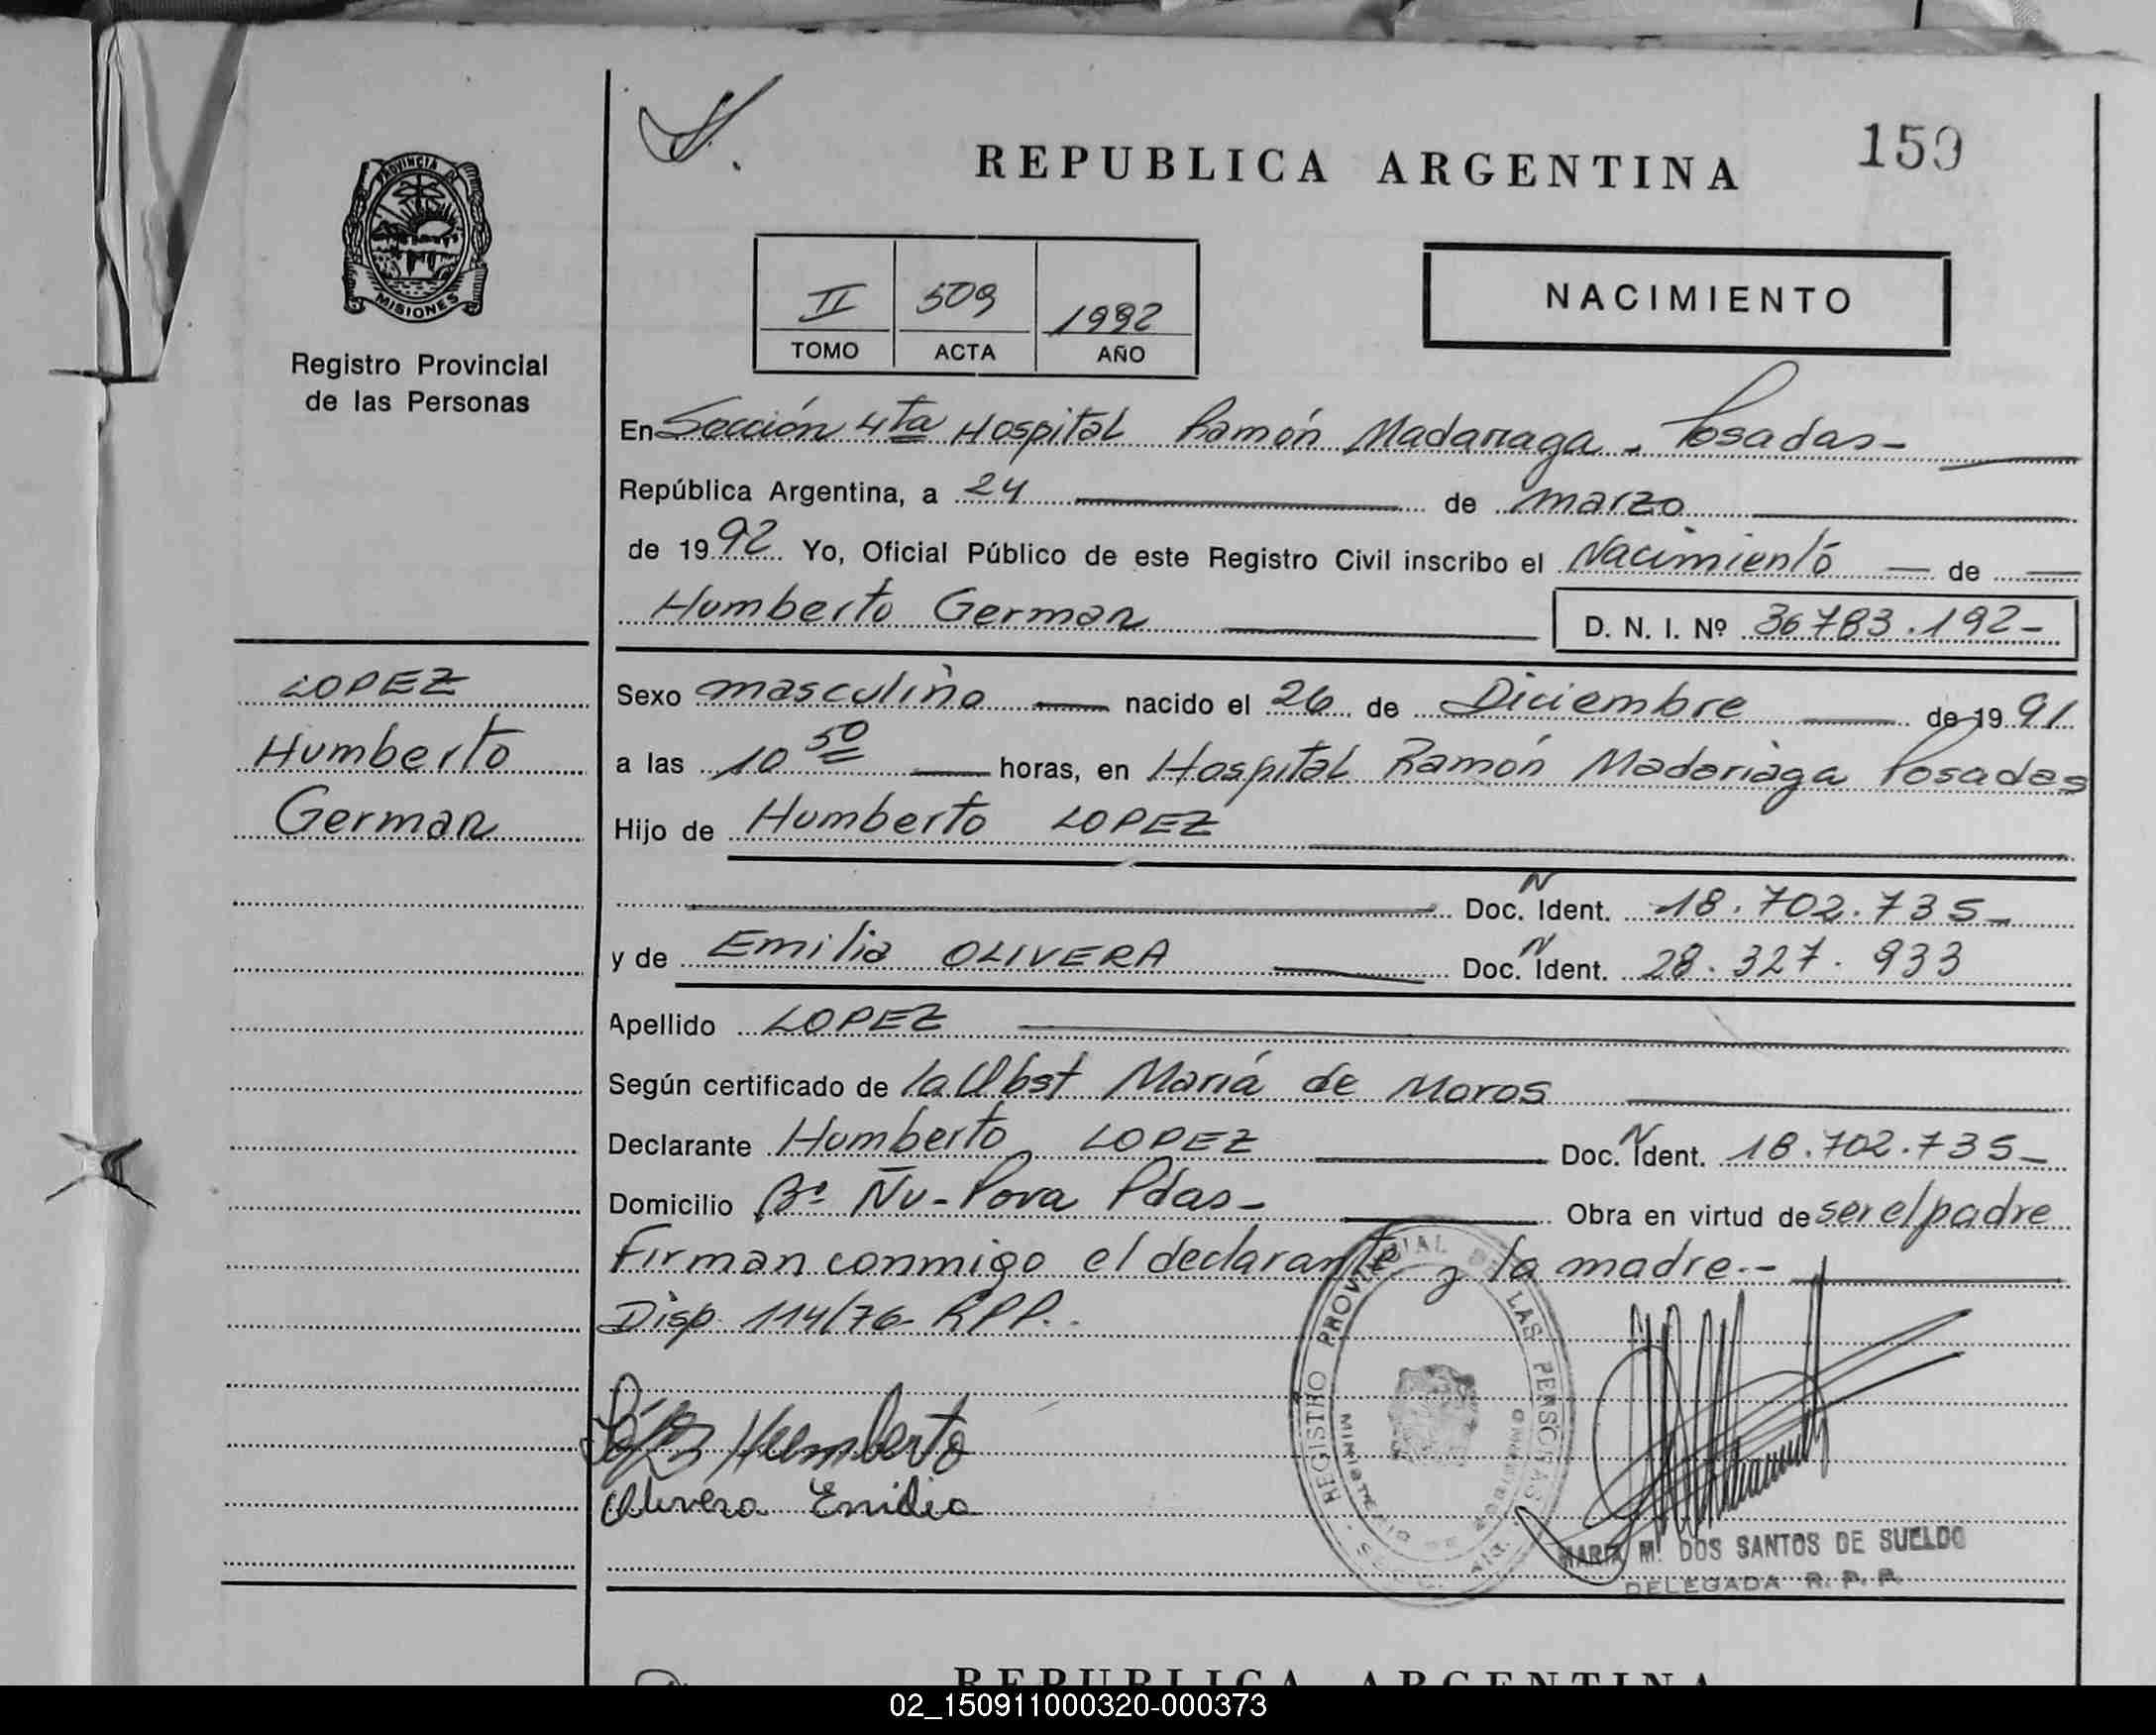 150
REPUBLICA ARGENTINA
PROVINCIA DE
MISIONES
Registro Provincial
de las Personas
II 509 1992
TOMO ACTA AÑO
NACIMIENTO
En Sección 4ta Hospital Ramón Madariaga - Posadas-
República Argentina, a 24 de marzo
de 1992 Yo, Oficial Público de este Registro Civil inscribo el Nacimiento de
Humberto German D. N. I. Nº 36783.192-
LOPEZ
Humberto
German
Sexo masculino nacido el 26 de Diciembre de 1991
a las 10 50 horas, en Hospital Ramón Madariaga Posadas
Hijo de Humberto LOPEZ
Doc. N Ident. 18.702.735-
y de Emilia OLIVERA Doc. N Ident. 28.327.933
Apellido LOPEZ
Según certificado de la Obst María de Moros
Declarante Humberto LOPEZ Doc. N Ident. 18.702.735-
Domicilio Bº Ñu-Pora Pdas- Obra en virtud de ser el padre
Firman conmigo el declarante y la madre.-
Disp. 114/76- RPP..
López Humberto
Olivera Emilia
REGISTRO PROVINCIAL DE LAS PERSONAS
MARIA M. DOS SANTOS DE SUELDO
DELEGADA R. P. P.
REPUBLICA ARGENTINA
02_150911000320-000373